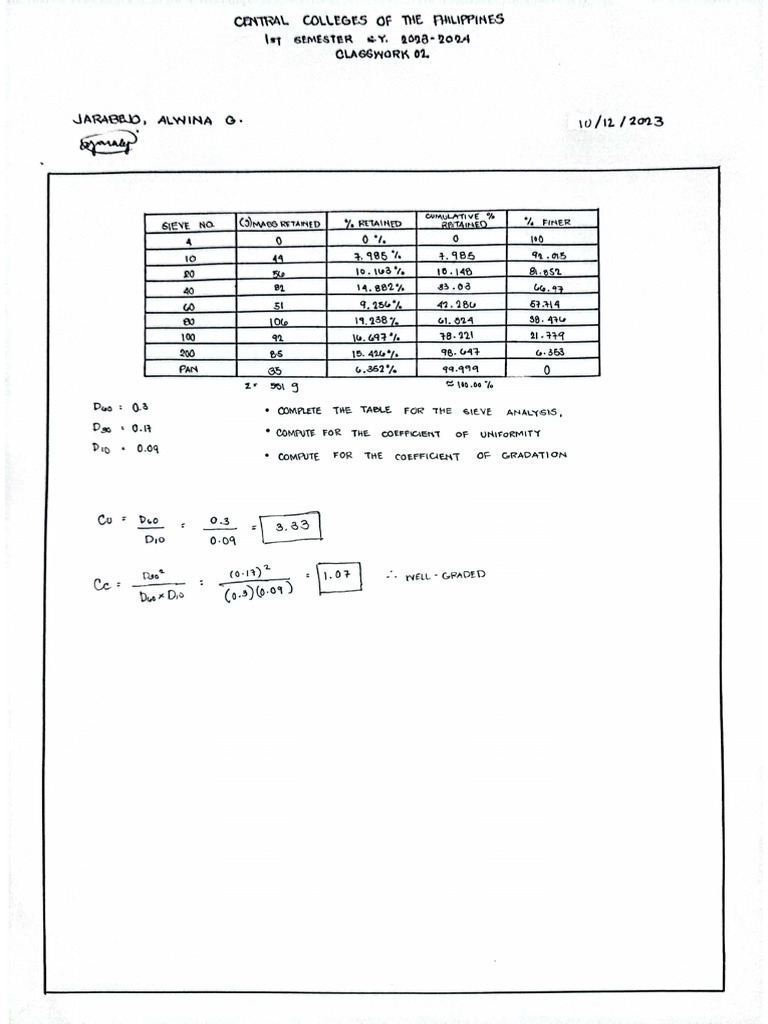 CENTRAL COLLEGES OF THE PHILIPPINES
1ST SEMESTER S.Y. 2023-2024
CLASSWORK 02.
JARABEJO, ALWINA G.
10/12/2023
SIEVE NO. (g) MASS RETAINED % RETAINED CUMULATIVE % RETAINED % FINER
4 0 0 % 0 100
10 44 7.985 % 7.985 92.015
20 56 10.163 % 18.148 81.852
40 82 14.882 % 33.03 66.97
60 51 9.256 % 42.286 57.714
80 106 19.238 % 61.524 38.476
100 92 16.697 % 78.221 21.779
200 85 15.426 % 93.647 6.353
PAN 35 6.352 % 99.999 0
Σ = 551 g ≈ 100.00 %
D60 = 0.3
• COMPLETE THE TABLE FOR THE SIEVE ANALYSIS,
D30 = 0.17
• COMPUTE FOR THE COEFFICIENT OF UNIFORMITY
D10 = 0.09
• COMPUTE FOR THE COEFFICIENT OF GRADATION
Cu = D60 / D10 = 0.3 / 0.09 = 3.33
Cc = D30² / D60 × D10 = (0.17)² / (0.3)(0.09) = 1.07 ∴ WELL-GRADED